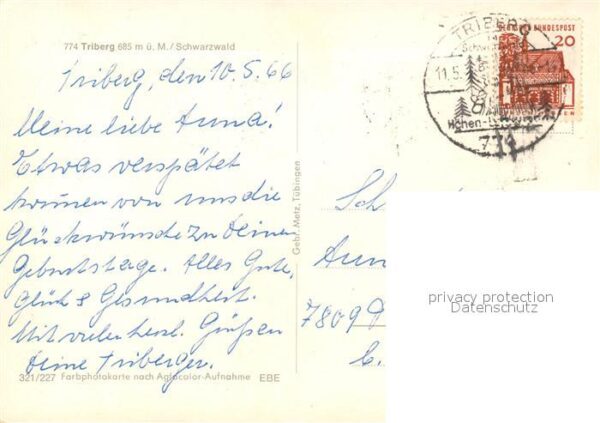 774 Triberg 685 m ü. M./Schwarzwald
Triberg, den 10.5.66
Meine liebe Anna!
Etwas verspätet
kommen von uns die
Glückwünsche zu Deinem
Geburtstage. Alles Gute,
Glück & Gesundheit.
Mit vielen herzl. Grüßen
Deine Triberger.
321/227 Farbphotokarte nach Agfacolor-Aufnahme EBE
Gebr. Metz, Tübingen
TRIBERG
11.5.
Höhen-
BUNDESPOST
20
Sch
7809
privacy protection
Datenschutz